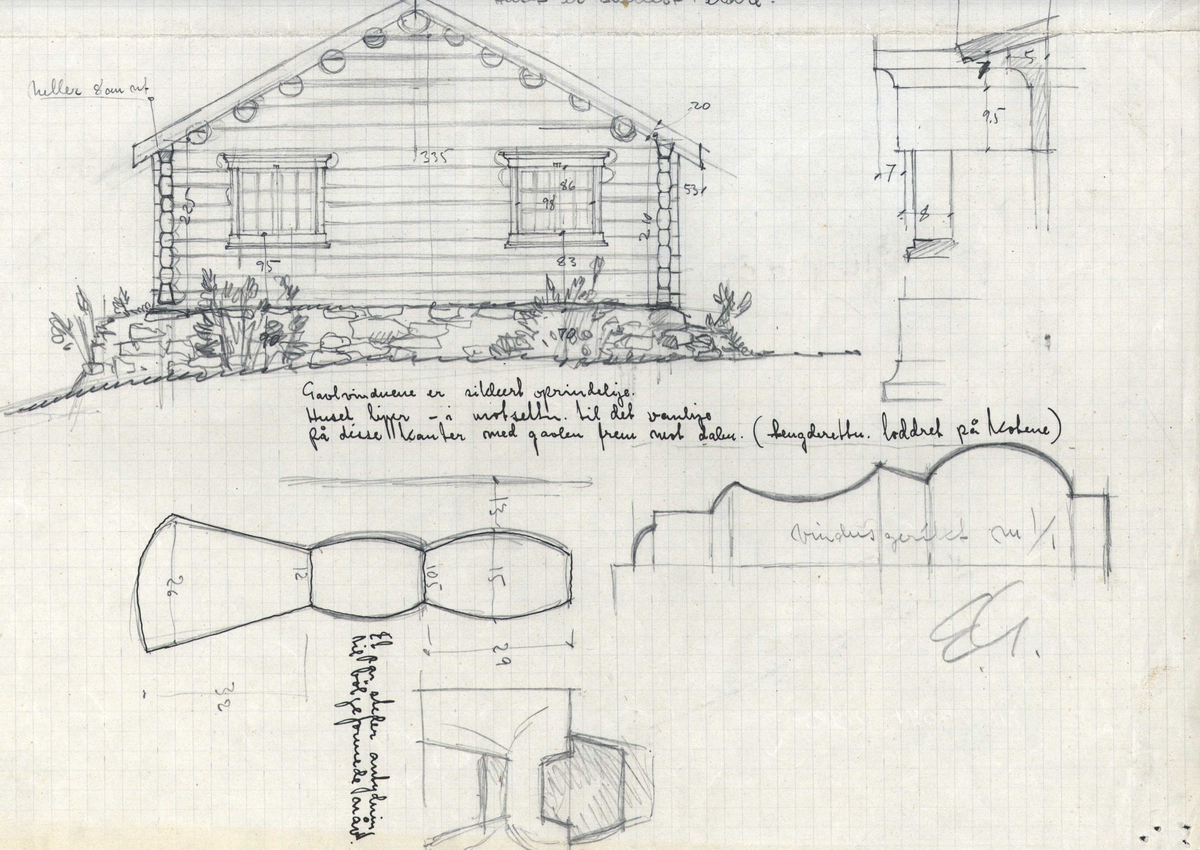 heller 8 cm ut
20
335
53
225
86
98
210
95
83
90
78
7
5
9.5
7
8
Gavlvinduene er sikkert oprindelige.
Huset ligger – i motsetn. til det vanlige
på disse kanter med gavlen frem mot dalen. (lengderetn. loddret på kotene)
13
26
12
10.5
15
29
32
Et par steder antydning
til bølgeformede
vindusgerikt m 1/1
E.G.